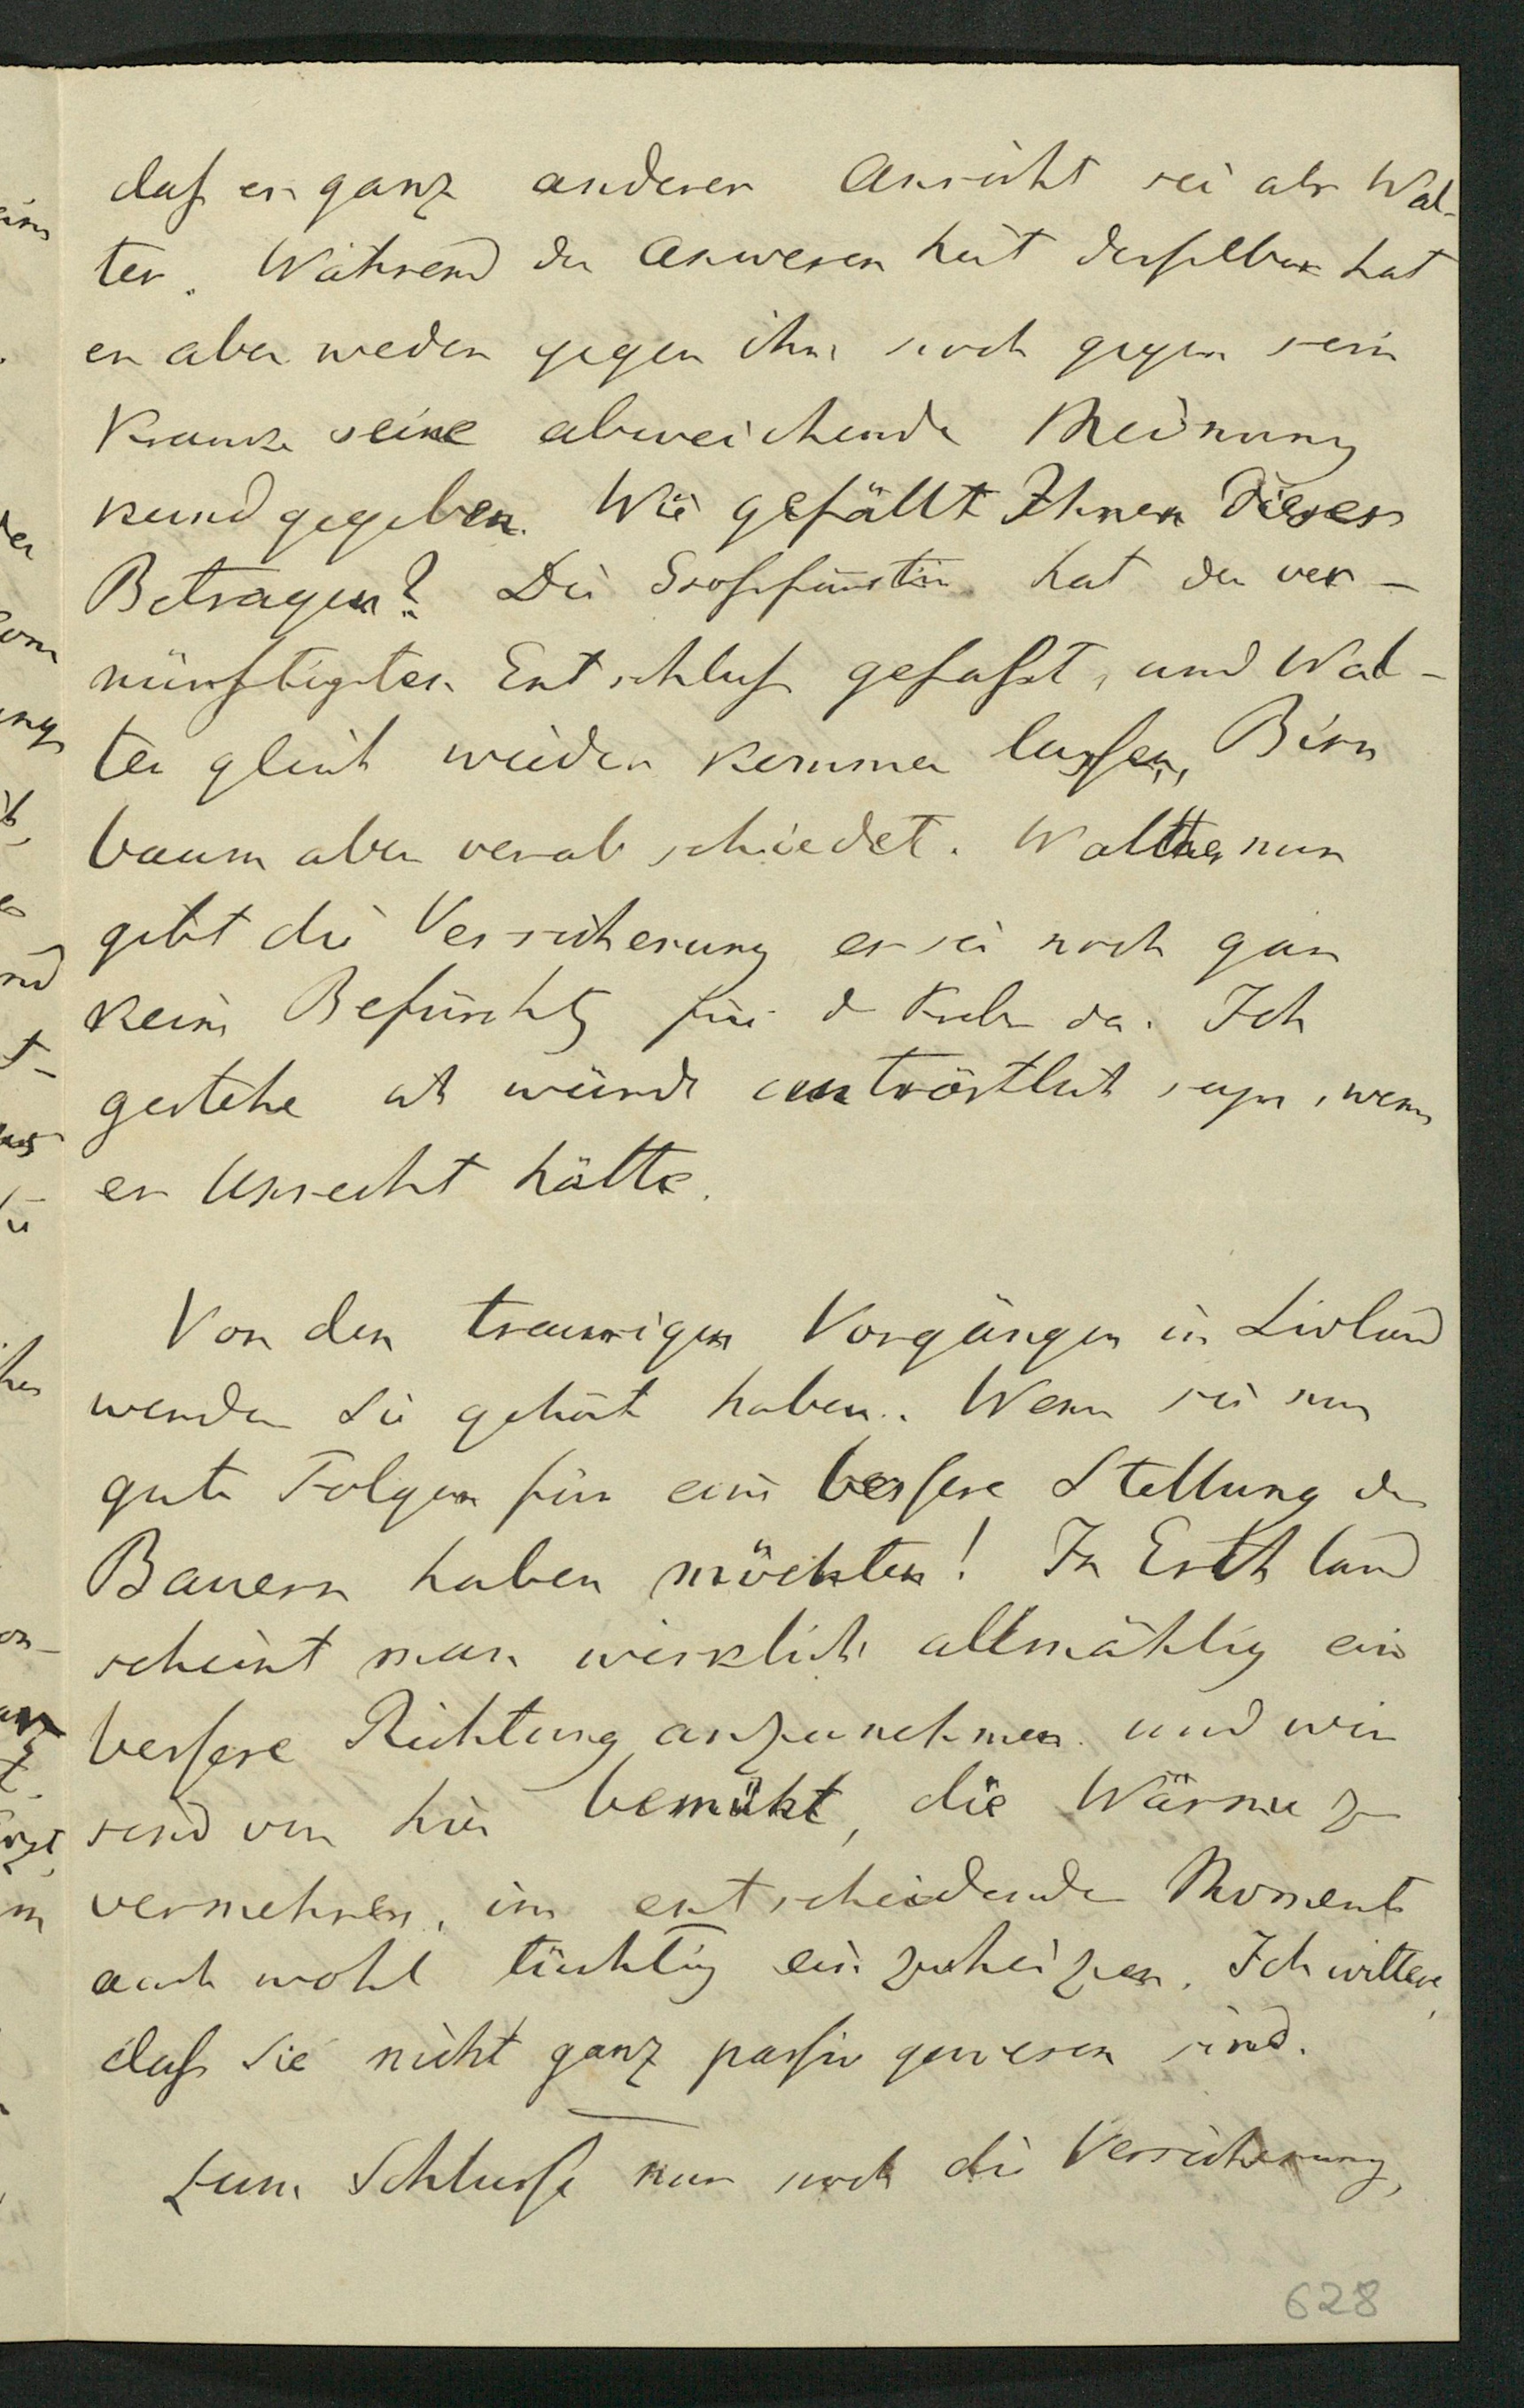 daß er ganz anderer Ansicht sei als Wal-
ter. Während der Anwesenheit desselben hat
er aber weder gegen ihn noch gegen sein
Kranke seine abweichende Meinung
kund gegeben. Wie gefällt Ihnen dieses
Betragen? Die Großfürstin hat den ver-
nünftigsten Entschluß gefaßt, und Wal-
ter gleich wieder kommen lassen, Birn
baum aber verabschiedet. Walther nun
gibt die Versicherung er sei noch gar
kein Befürchtg für d da. Ich
gestehe ich würde untröstlich seyn, wenn
er Unrecht hätte.
Von den traurigen Vorgängen in Livland
werden Sie gehört haben. Wenn sie nun
gute Folgen für eine bessere Stellung der
Bauern haben möchten! In Esthland
scheint man wirklich allmählig ein
bessere Richtung anzunehmen und wir
sind von hier bemüht, die Wärme zu
vermehren, im entscheidenden Moment
auch wohl tüchtig einzuheizen. Ich wittere,
daß Sie nicht ganz passiv gewesen sind.
Zum Schlusse nur noch die Versicherung,
628